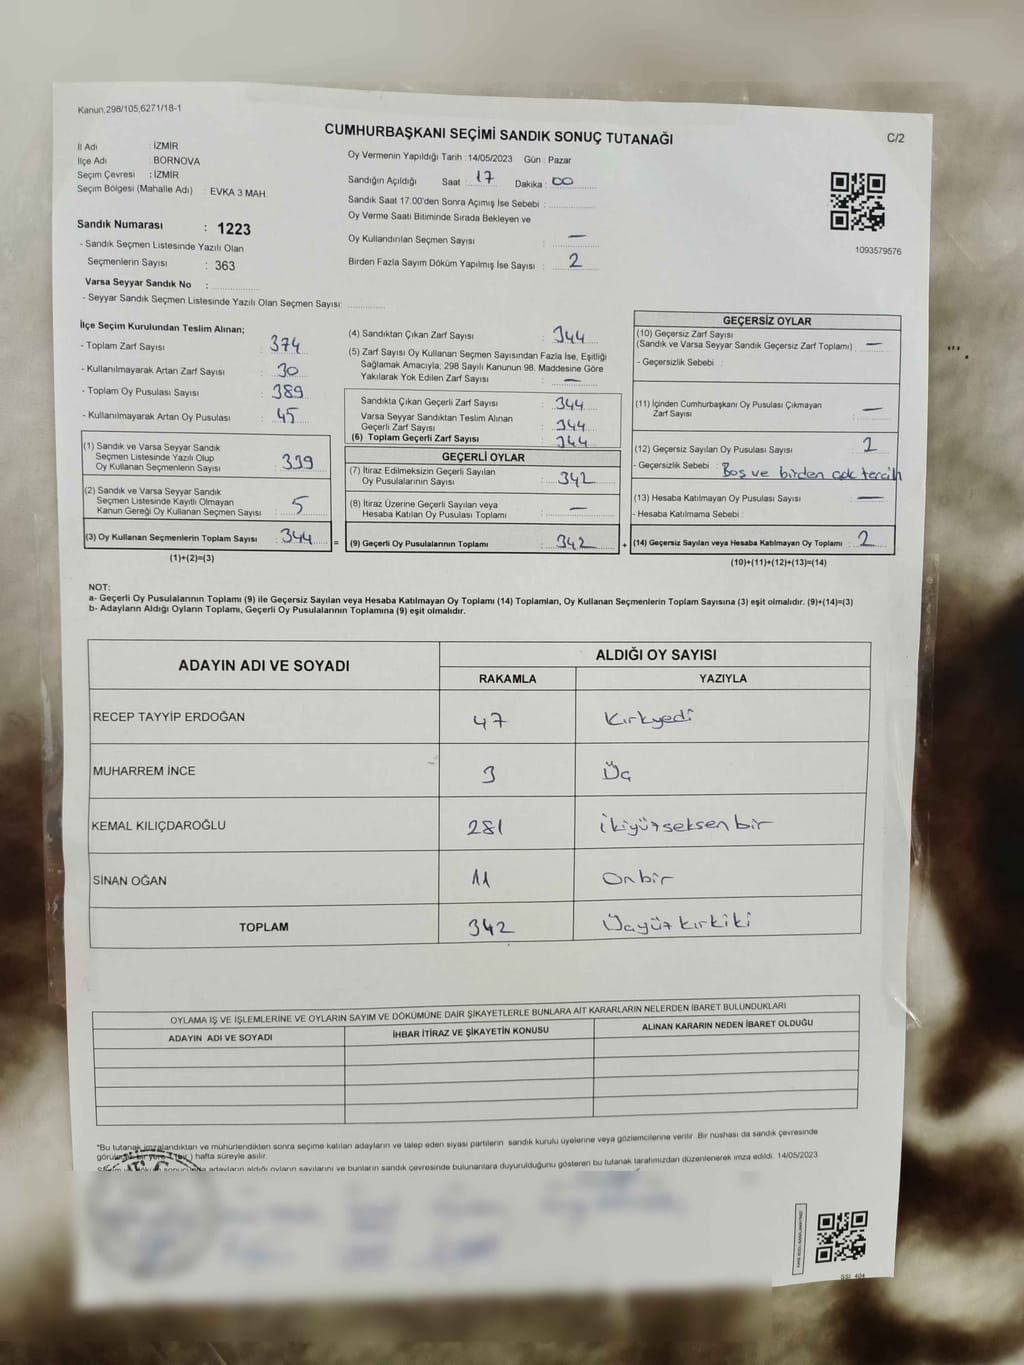 Kanun,298/105,6271/18-1
CUMHURBAŞKANI SEÇİMİ SANDIK SONUÇ TUTANAĞI
C/2
İl Adı : İZMİR
İlçe Adı : BORNOVA
Seçim Çevresi : İZMİR
Seçim Bölgesi (Mahalle Adı) : EVKA 3 MAH.
Oy Vermenin Yapıldığı Tarih : 14/05/2023 Gün : Pazar
Sandığın Açıldığı Saat : 17 Dakika : 00
Sandık Saat 17.00'den Sonra Açımış İse Sebebi :
Oy Verme Saati Bitiminde Sırada Bekleyen ve
Oy Kullandırılan Seçmen Sayısı : —
Birden Fazla Sayım Döküm Yapılmış İse Sayısı : 2
1093579576
Sandık Numarası : 1223
- Sandık Seçmen Listesinde Yazılı Olan
Seçmenlerin Sayısı : 363
Varsa Seyyar Sandık No :
- Seyyar Sandık Seçmen Listesinde Yazılı Olan Seçmen Sayısı:
İlçe Seçim Kurulundan Teslim Alınan;
- Toplam Zarf Sayısı : 374
- Kullanılmayarak Artan Zarf Sayısı : 30
- Toplam Oy Pusulası Sayısı : 389
- Kullanılmayarak Artan Oy Pusulası : 45
(1) Sandık ve Varsa Seyyar Sandık
Seçmen Listesinde Yazılı Olup
Oy Kullanan Seçmenlerin Sayısı : 339
(2) Sandık ve Varsa Seyyar Sandık
Seçmen Listesinde Kayıtlı Olmayan
Kanun Gereği Oy Kullanan Seçmen Sayısı : 5
(3) Oy Kullanan Seçmenlerin Toplam Sayısı : 344 =
(1)+(2)=(3)
(4) Sandıktan Çıkan Zarf Sayısı : 344
(5) Zarf Sayısı Oy Kullanan Seçmen Sayısından Fazla İse, Eşitliği
Sağlamak Amacıyla, 298 Sayılı Kanunun 98. Maddesine Göre
Yakılarak Yok Edilen Zarf Sayısı : —
Sandıkta Çıkan Geçerli Zarf Sayısı : 344
Varsa Seyyar Sandıktan Teslim Alınan
Geçerli Zarf Sayısı : 344
(6) Toplam Geçerli Zarf Sayısı : 344
GEÇERLİ OYLAR
(7) İtiraz Edilmeksizin Geçerli Sayılan
Oy Pusulalarının Sayısı : 342
(8) İtiraz Üzerine Geçerli Sayılan veya
Hesaba Katılan Oy Pusulası Toplamı : —
(9) Geçerli Oy Pusulalarının Toplamı : 342 +
GEÇERSİZ OYLAR
(10) Geçersiz Zarf Sayısı
(Sandık ve Varsa Seyyar Sandık Geçersiz Zarf Toplamı) : —
- Geçersizlik Sebebi :
(11) İçinden Cumhurbaşkanı Oy Pusulası Çıkmayan
Zarf Sayısı : —
(12) Geçersiz Sayılan Oy Pusulası Sayısı : 2
- Geçersizlik Sebebi : Boş ve birden çok tercih
(13) Hesaba Katılmayan Oy Pusulası Sayısı : —
- Hesaba Katılmama Sebebi :
(14) Geçersiz Sayılan veya Hesaba Katılmayan Oy Toplamı : 2
(10)+(11)+(12)+(13)=(14)
NOT:
a- Geçerli Oy Pusulalarının Toplamı (9) ile Geçersiz Sayılan veya Hesaba Katılmayan Oy Toplamı (14) Toplamları, Oy Kullanan Seçmenlerin Toplam Sayısına (3) eşit olmalıdır. (9)+(14)=(3)
b- Adayların Aldığı Oyların Toplamı, Geçerli Oy Pusulalarının Toplamına (9) eşit olmalıdır.
ADAYIN ADI VE SOYADI
ALDIĞI OY SAYISI
RAKAMLA YAZIYLA
RECEP TAYYİP ERDOĞAN 47 Kırkyedi
MUHARREM İNCE 3 Üç
KEMAL KILIÇDAROĞLU 281 İkiyüzseksenbir
SİNAN OĞAN 11 Onbir
TOPLAM 342 Üçyüzkırkiki
OYLAMA İŞ VE İŞLEMLERİNE VE OYLARIN SAYIM VE DÖKÜMÜNE DAİR ŞİKAYETLERLE BUNLARA AİT KARARLARIN NELERDEN İBARET BULUNDUKLARI
ADAYIN ADI VE SOYADI İHBAR İTİRAZ VE ŞİKAYETİN KONUSU ALINAN KARARIN NEDEN İBARET OLDUĞU
*Bu tutanak imzalandıktan ve mühürlendikten sonra seçime katılan adayların ve talep eden siyasi partilerin sandık kurulu üyelerine veya gözlemcilerine verilir. Bir nüshası da sandık çevresinde
hafta süreyle asılır.
adayların aldığı oyların sayılarını ve bunların sandık çevresinde bulunanlara duyurulduğunu gösteren bu tutanak tarafımızdan düzenlenerek imza edildi. 14/05/2023
SSİ_404